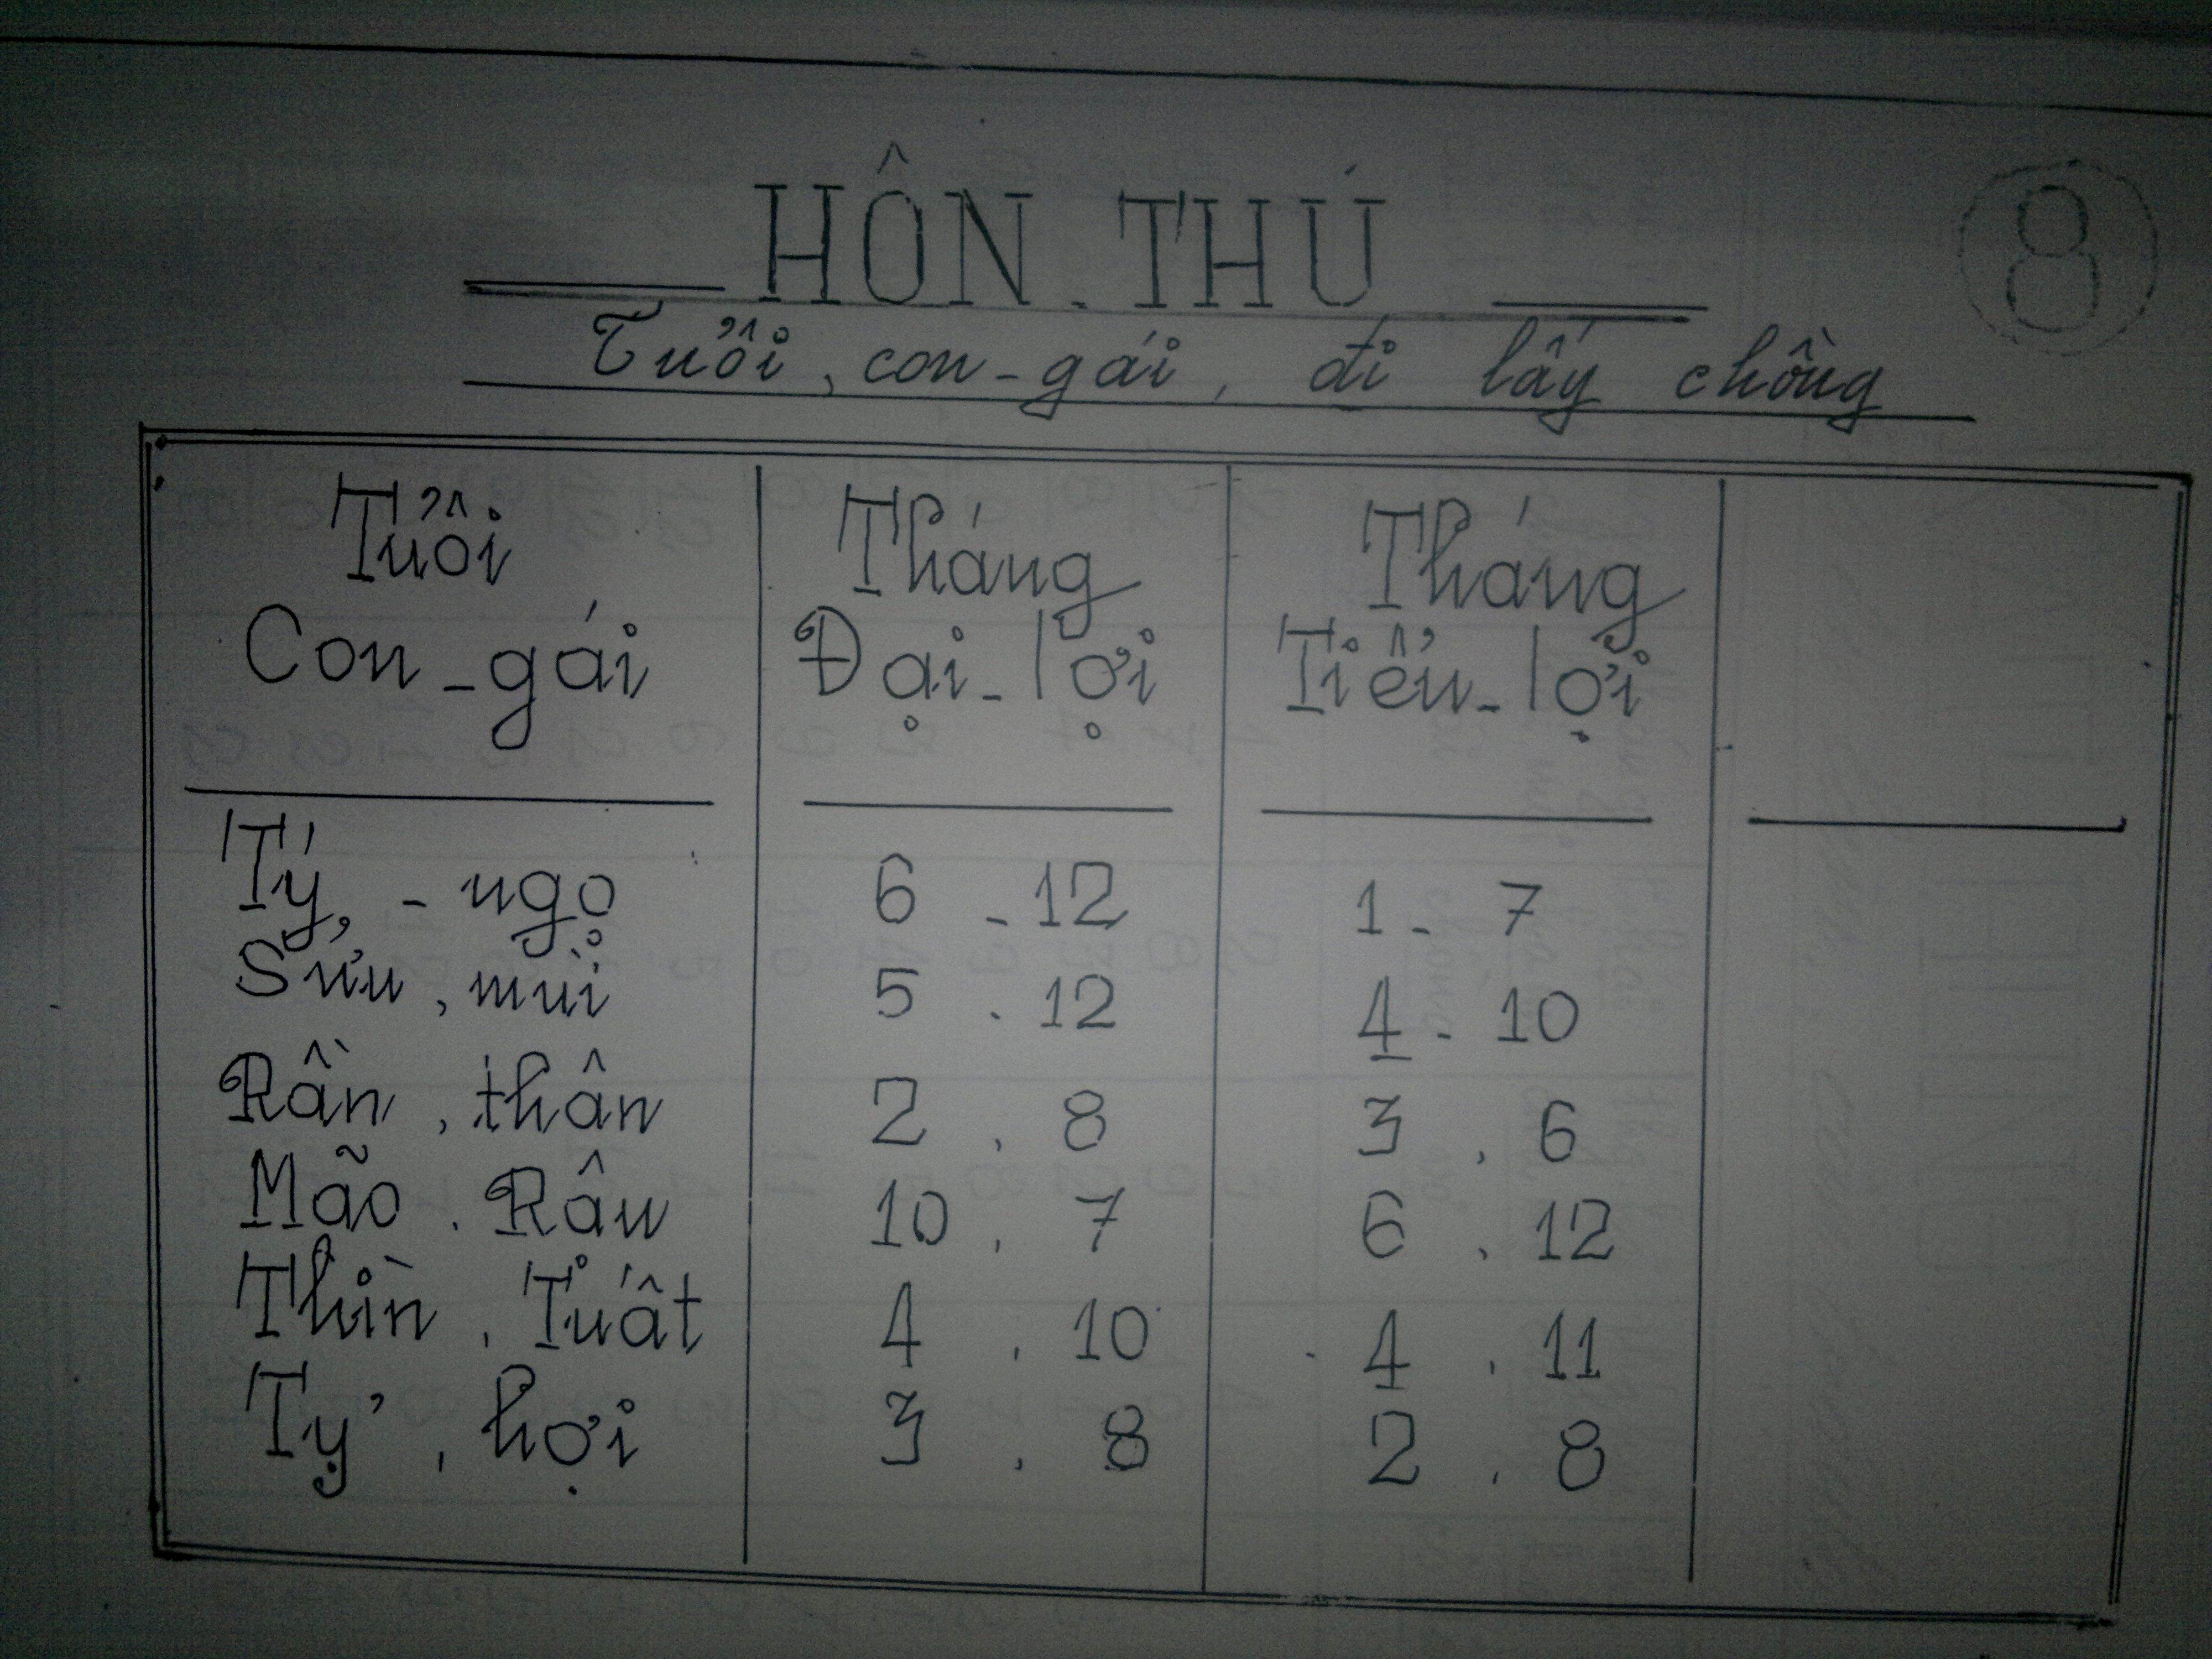 HÔN - THÚ
8
Tuổi, con-gái, đi lấy chồng
Tuổi Con-gái
Tháng Đại-lợi
Tháng Tiểu-lợi
Tý, - ngọ 6 - 12 1 - 7
Sửu, mùi 5 . 12 4 - 10
Rần, thân 2 , 8 3 , 6
Mão . Rậu 10 , 7 6 , 12
Thìn , Tuất 4 , 10 4 , 11
Tỵ' , hợi 3 , 8 2 , 8